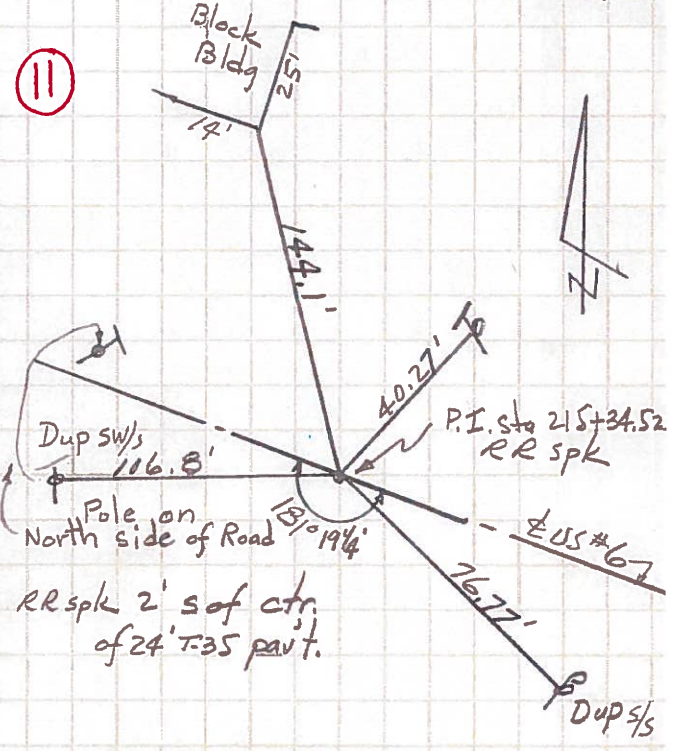 11
Block
Bldg
25'
14'
144.1'
N
40.27'
P.I. sta 215+34.52
RR spk
Dup sw/s
106.8'
Pole on
North side of Road
181° 19¼'
℄ US #67
RR spk 2' s of ctr.
of 24' T-35 pav't.
76.77'
Dup s/s